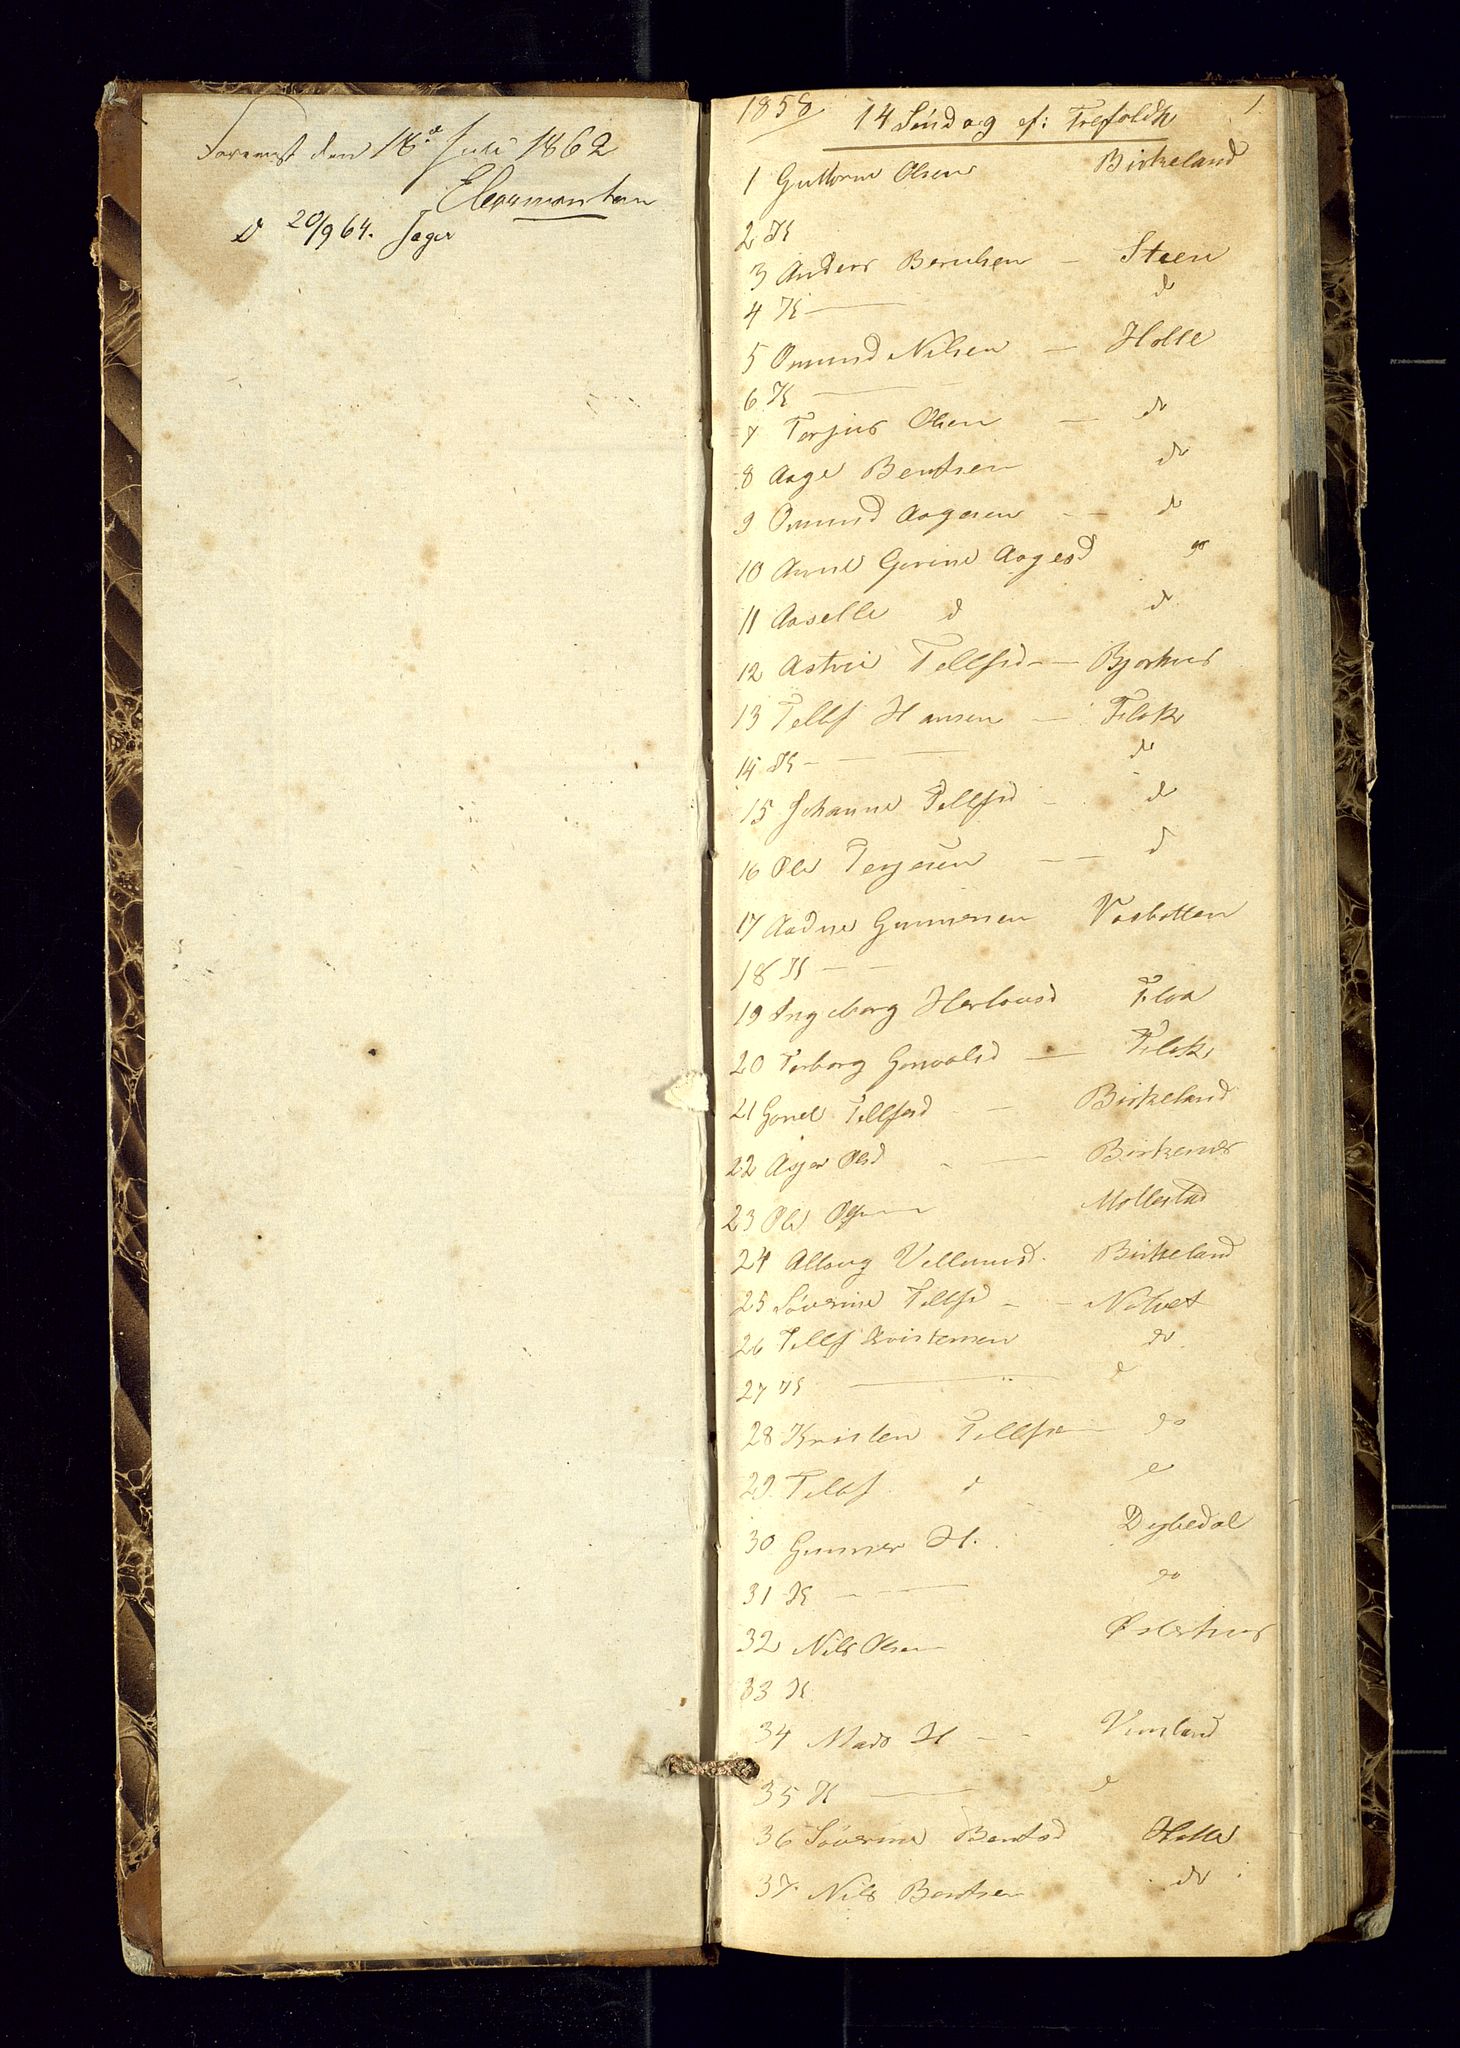 Forevist den 18de Juli 1862
d 20/9 64. Jager
1858 14 Søndag ef: Trefoldh 1.
1 Guttorm Olsen Birkeland
2 K
3 Anders Berulsen — Steen
4 K — d
5 Omund Nilsen — Holle
6 K —
7 Terjus Olsen — do
8 Aage Bentsen do
9 Omund Aagesen — — do
10 Anne Gurine Aagesd do
11 Aaselle d d
12 Astrie Tellfsd — Bjorhus
13 Tellf Hansen — Flak
14 K — — — do
15 Johanne Tellfsd - d
16 Ole Terjesen — — d
17 Aadne Gunnersen Vasbotten
18 K — —
19 Ingeborg Herlousd Floa
20 Torborg Gonvalsd — Flak
21 Gonel Tellfsd - — Birkeland
22 Asger Olsd - — Birkenes
23 Ole Mollestad
24 Alloug Vellumsd. Birkeland
25 Søverine Tellfsd — — Natvet
26 Tellf Kristensen do
27 K — d
28 Kristen Tellfsen do
29 Tellf d d
30 Gunner H. Dybedal
31 K — — do
32 Nils Olsen Østerhus
33 K
34 Mads H — — Vimland
35 K — d
36 Søverine Bentsd Holle
37 Nils Bentsen do